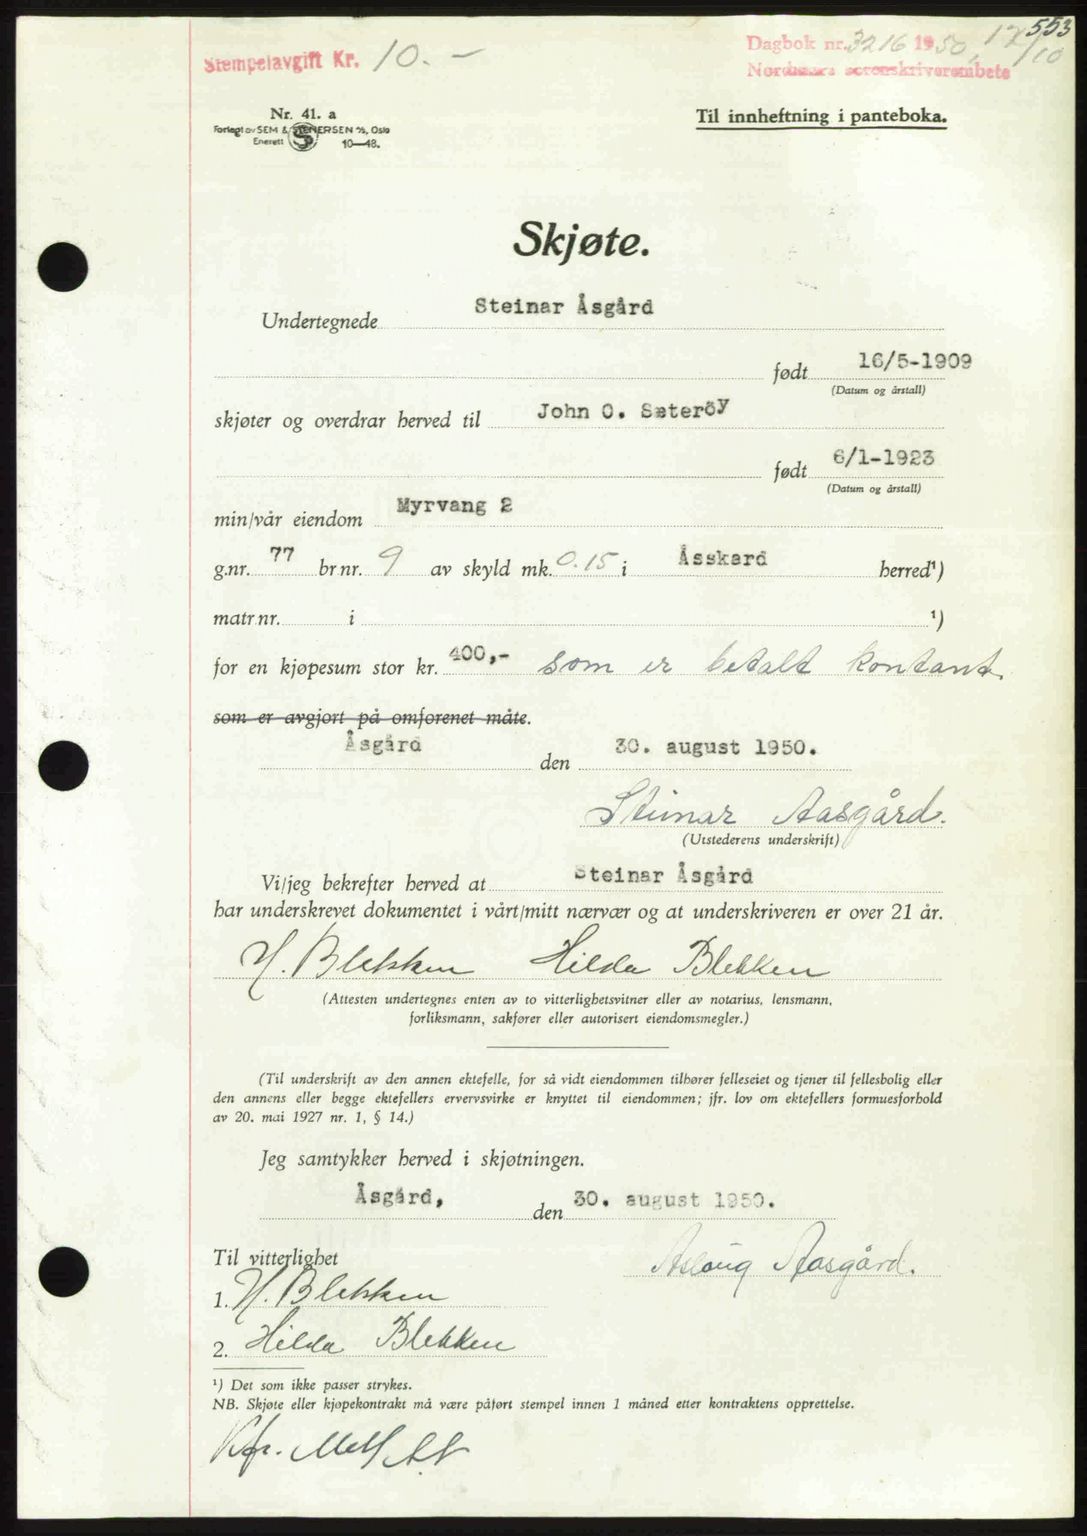 553
Stempelavgift Kr. 10.-
Dagbok nr. 3216 1950, 12/10
Nordmøre sorenskriverembete
Nr. 41. a
Forlagt av SEM & STENERSEN A/S, Oslo
Enerett 10—48.
Til innheftning i panteboka.
Skjøte.
Undertegnede Steinar Åsgård
født 16/5-1909
(Datum og årstall)
skjøter og overdrar herved til John O. Sæteröy
født 6/1-1923
(Datum og årstall)
min/vår eiendom Myrvang 2
g.nr. 77 br.nr. 9 av skyld mk. 0.15 i Åsskard herred¹)
matr.nr. i ¹)
for en kjøpesum stor kr. 400,- som er betalt kontant.
som er avgjort på omforenet måte.
Åsgård den 30. august 1950.
Steinar Aasgård.
(Utstederens underskrift)
Vi/jeg bekrefter herved at Steinar Åsgård
har underskrevet dokumentet i vårt/mitt nærvær og at underskriveren er over 21 år.
H. Blekken Hilda Blekken
(Attesten undertegnes enten av to vitterlighetsvitner eller av notarius, lensmann,
forliksmann, sakfører eller autorisert eiendomsmegler.)
(Til underskrift av den annen ektefelle, for så vidt eiendommen tilhører felleseiet og tjener til fellesbolig eller
den annens eller begge ektefellers ervervsvirke er knyttet til eiendommen; jfr. lov om ektefellers formuesforhold
av 20. mai 1927 nr. 1, § 14.)
Jeg samtykker herved i skjøtningen.
Åsgård, den 30. august 1950.
Til vitterlighet
Aslaug Aasgård.
1. H. Blekken
2. Hilda Blekken
¹) Det som ikke passer strykes.
NB. Skjøte eller kjøpekontrakt må være påført stempel innen 1 måned etter kontraktens opprettelse.